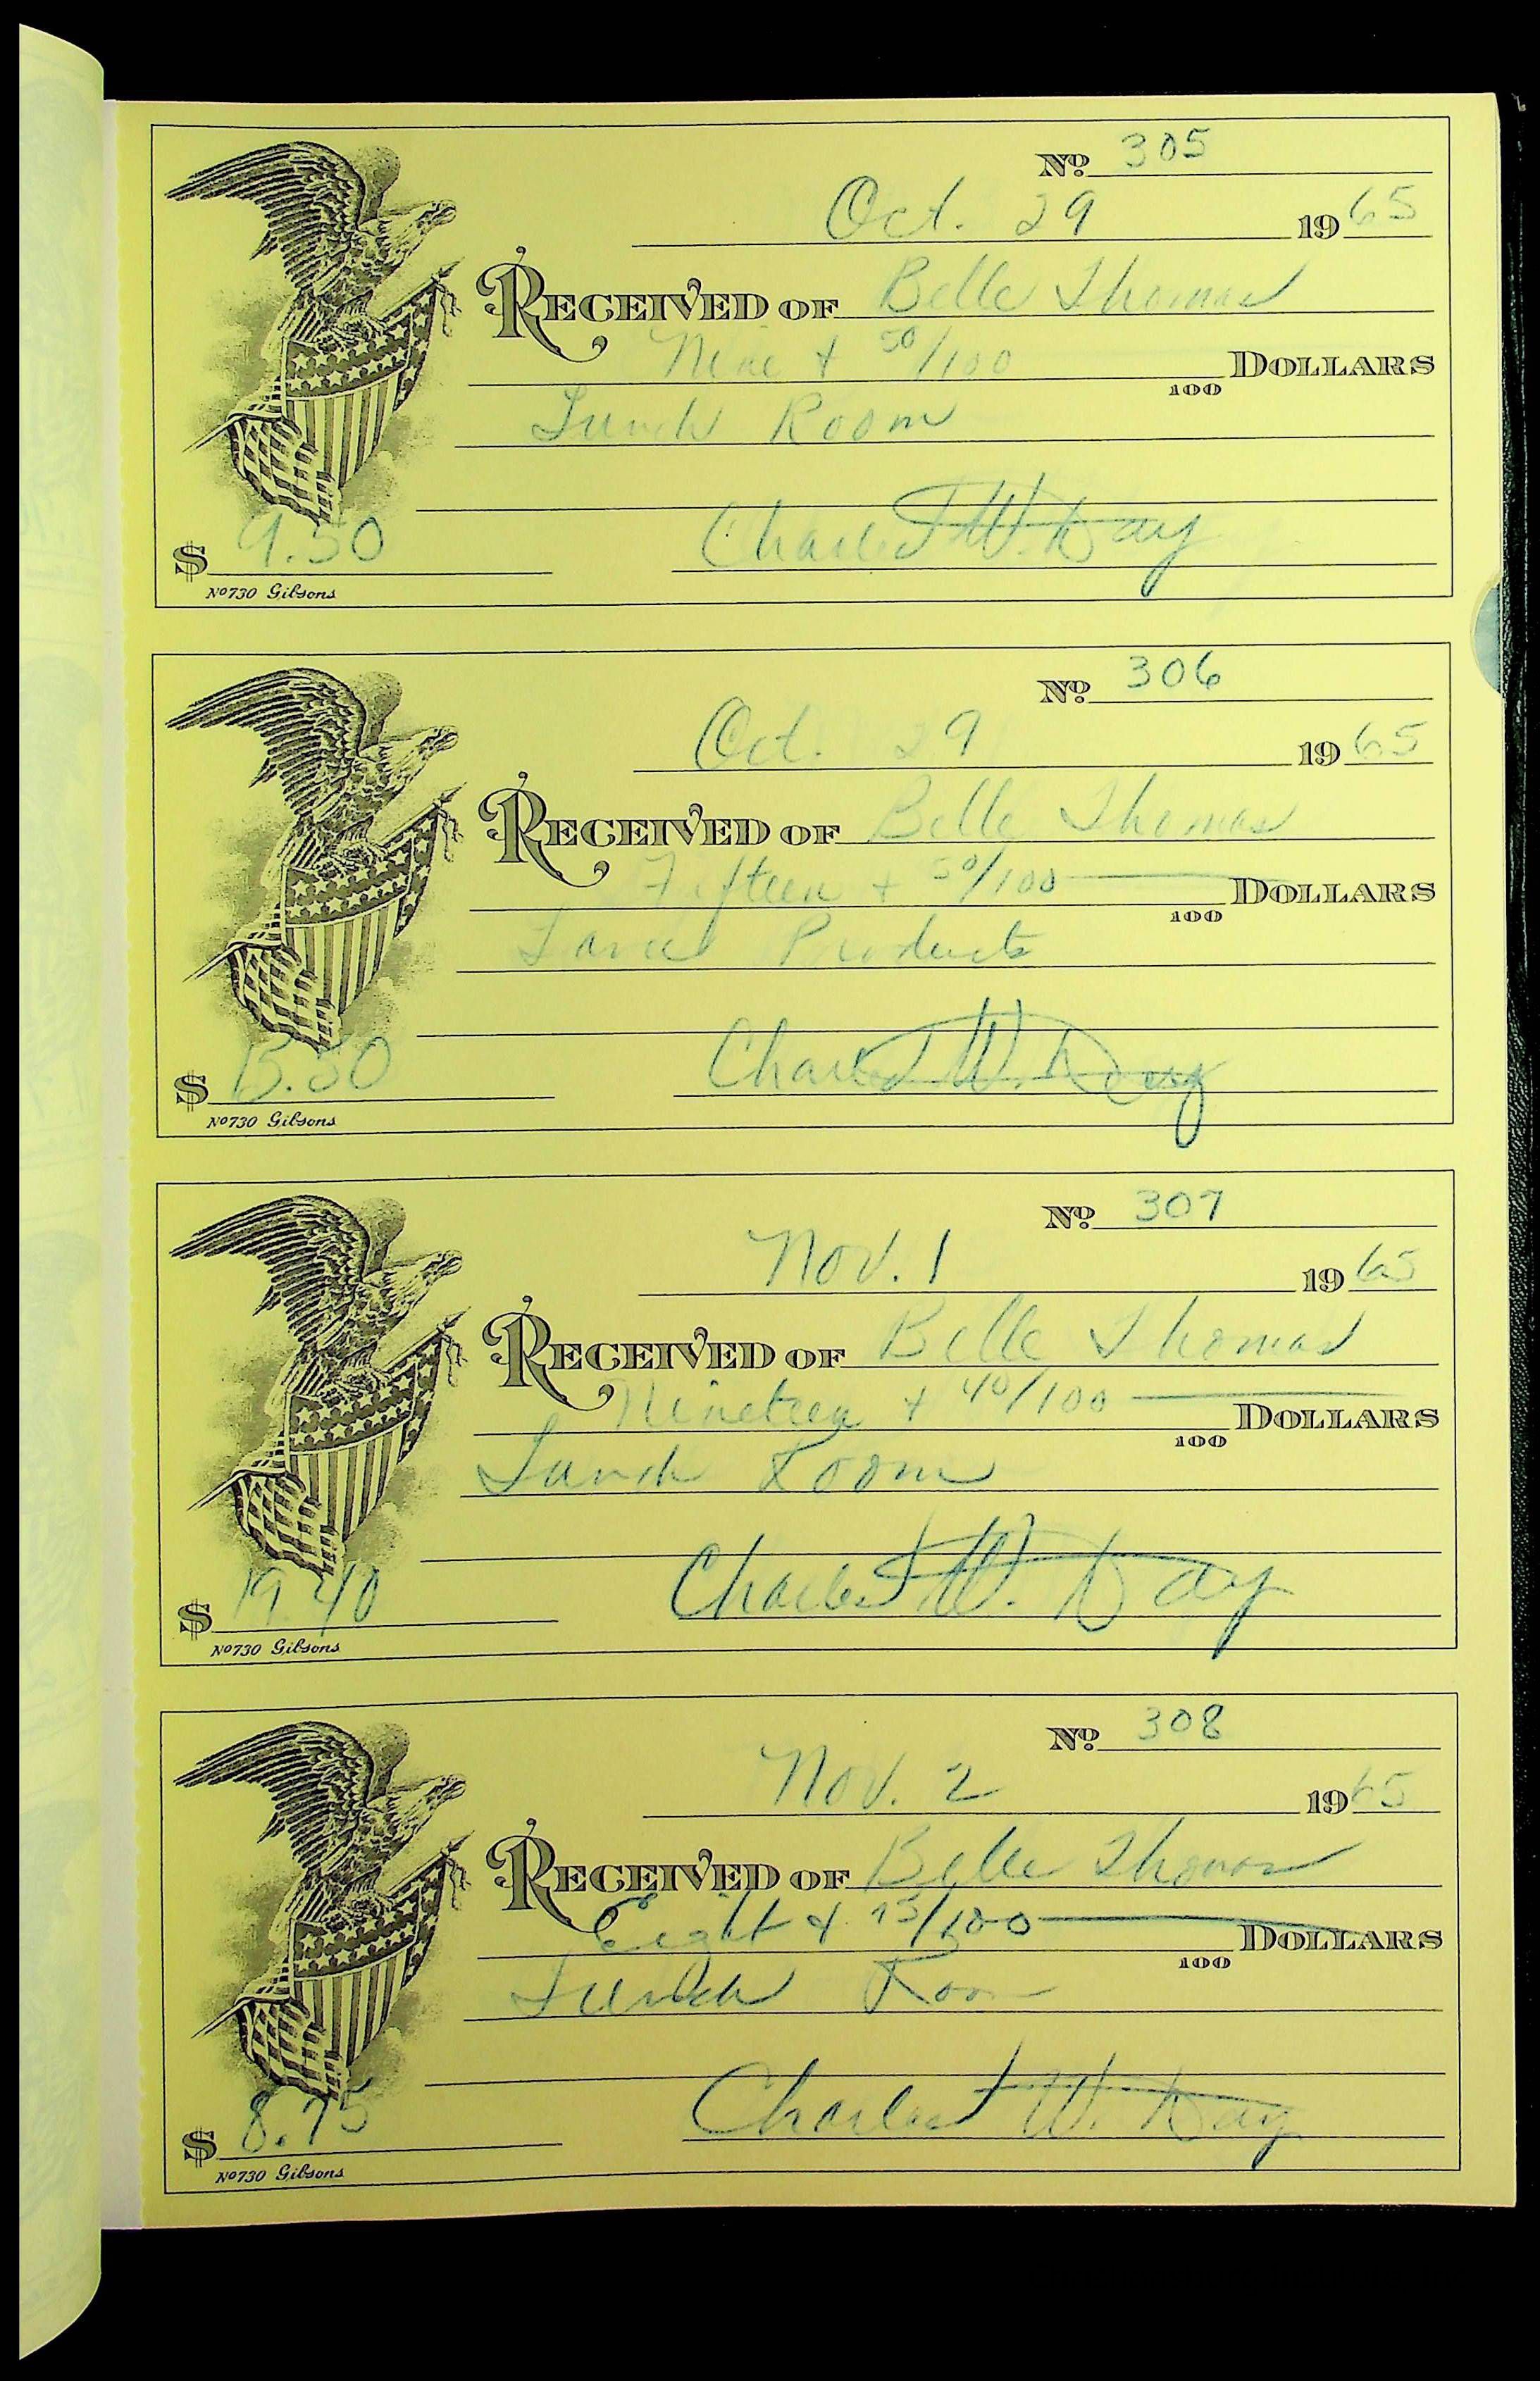 No. 305
Oct. 29 1965
RECEIVED OF Belle Thomas
Nine + 50/100 DOLLARS
100
Lunch Room
$ 9.50 Charles W. Day
No 730 Gibsons
No. 306
Oct. 29 1965
RECEIVED OF Belle Thomas
Fifteen + 50/100 DOLLARS
100
Products
$ 15.50 Charles W. Day
No 730 Gibsons
No. 307
Nov. 1 1965
RECEIVED OF Belle Thomas
Nineteen + 40/100 DOLLARS
100
Lunch Room
$ 19.40 Charles W. Day
No 730 Gibsons
No. 308
Nov. 2 1965
RECEIVED OF Belle Thomas
Eight & 75/100 DOLLARS
100
Lunch Room
$ 8.75 Charles W. Day
No 730 Gibsons